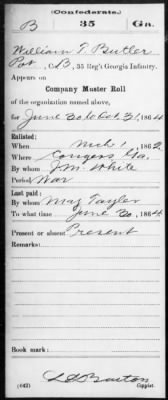 (Confederate.)
B 35 Ga.
William T. Butler
Pvt, Co. B, 35 Reg't Georgia Infantry.
Appears on
Company Muster Roll
of the organization named above,
for June 30 to Oct 31, 1864
Enlisted:
When Mch 1, 1862
Where Conyers Ga.
By whom J.M. White
Period War
Last paid:
By whom Maj Tayler
To what time June 30, 1864
Present or absent Present
Remarks:
Book mark:
(642) Barton
Copyist.